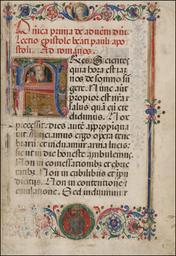 Dnica prima de aduentu dni
Lectio epistole beati pauli apo
stoli. Ad romanos.
Res: Scientes
quia hora est iaz
nos de somno sur
gere. Nunc aut
propior est nra
salus qua cu cre
didimus. Nox
precessit: dies aute appropiqua
uit. Abijciamus ergo opera tene
brarum: et induamur arma lucis.
Sicut in die honeste ambulemus.
Non in comessationibus et ebrie
tatibus. Non in cubilibus et ipu
dicitijs. Non in contentione et
emulatione. Sed induimini